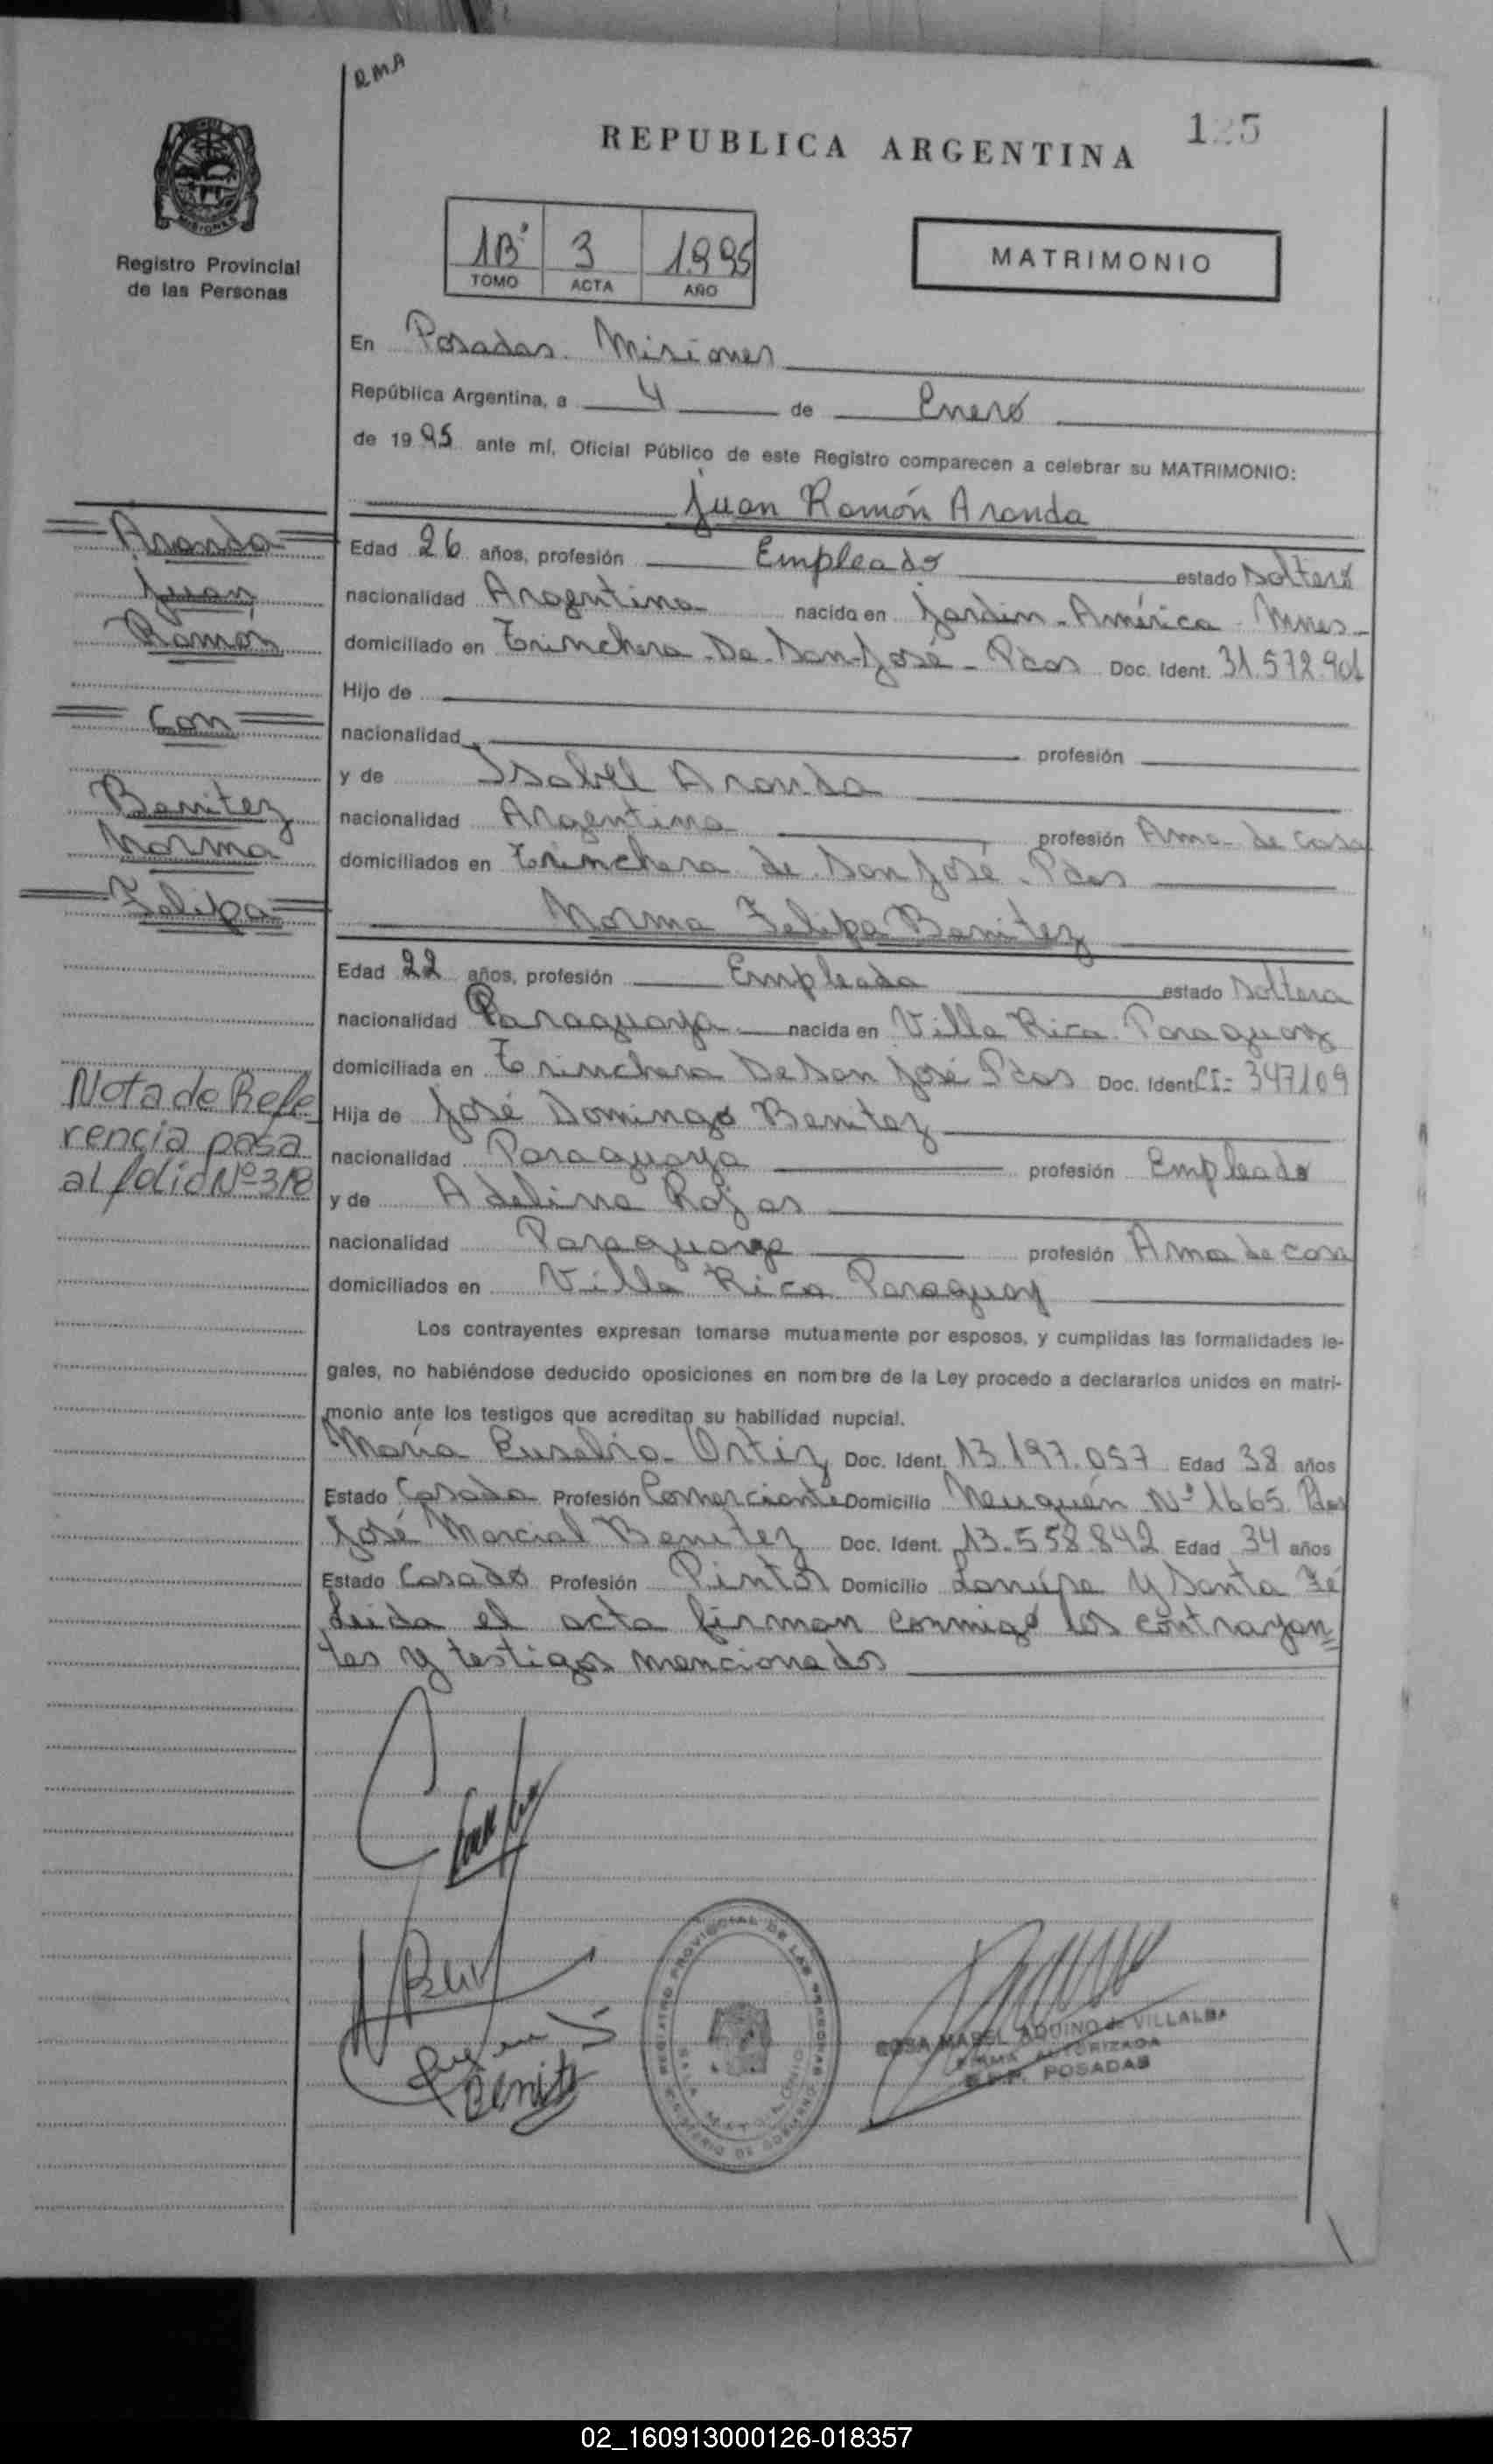 RMA
REPUBLICA ARGENTINA
MISIONES
Registro Provincial
de las Personas
1B° 3 1.995
TOMO ACTA AÑO
MATRIMONIO
En Posadas. Misiones
República Argentina, a 4 de Enero
de 1995 ante mí, Oficial Público de este Registro comparecen a celebrar su MATRIMONIO:
Juan Ramón Aranda
Aranda
Juan
Ramón
Con
Benitez
Norma
Felipa
Edad 26 años, profesión Empleado estado Soltero
nacionalidad Argentina nacido en Jardin-América-Mnes-
domiciliado en Trinchera-De-San-José-Pdas Doc. Ident. 31.572.901
Hijo de
nacionalidad profesión
y de Isabel Aranda
nacionalidad Argentina profesión Ama-de casa
domiciliados en Trinchera de San José-Pdas
Norma Felipa Benitez
Edad 22 años, profesión Empleada estado Soltera
nacionalidad Paraguaya nacida en Villa Rica. Paraguay
domiciliada en Trinchera De San José Pdas Doc. Ident CI: 347109
Nota de Refe-
rencia pasa
al folio Nº 318
Hija de José Domingo Benitez
nacionalidad Paraguaya profesión Empleado
y de Adelina Rojas
nacionalidad Paraguaya profesión Ama de casa
domiciliados en Villa Rica Paraguay
Los contrayentes expresan tomarse mutuamente por esposos, y cumplidas las formalidades le-
gales, no habiéndose deducido oposiciones en nombre de la Ley procedo a declararlos unidos en matri-
monio ante los testigos que acreditan su habilidad nupcial.
María Eusebia Ortiz Doc. Ident. 13.197.057 Edad 38 años
Estado Casada Profesión Comerciante Domicilio Neuquén Nº 1665 Pdas
José Marcial Benitez Doc. Ident. 13.558.842 Edad 34 años
Estado Casado Profesión Pintor Domicilio y Santa Fé
Leida el acta firman conmigo los contrayen=
tes y testigos mencionados
Benitez
REGISTRO PROVINCIAL DE LAS PERSONAS
MINISTERIO DE GOBIERNO
ROSA MABEL AQUINO de VILLALBA
FIRMA AUTORIZADA
POSADAS
02_160913000126-018357